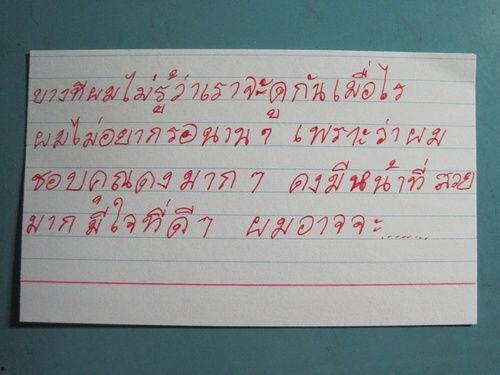 บางทีผมไม่รู้ว่าเราจะดูกันเมื่อไร
ผมไม่อยากรอนานๆ เพราะว่าผม
ชอบคุณดงมากๆ ดงมีหน้าที่สวย
มาก มีใจที่ดีๆ ผมอาจจะ........